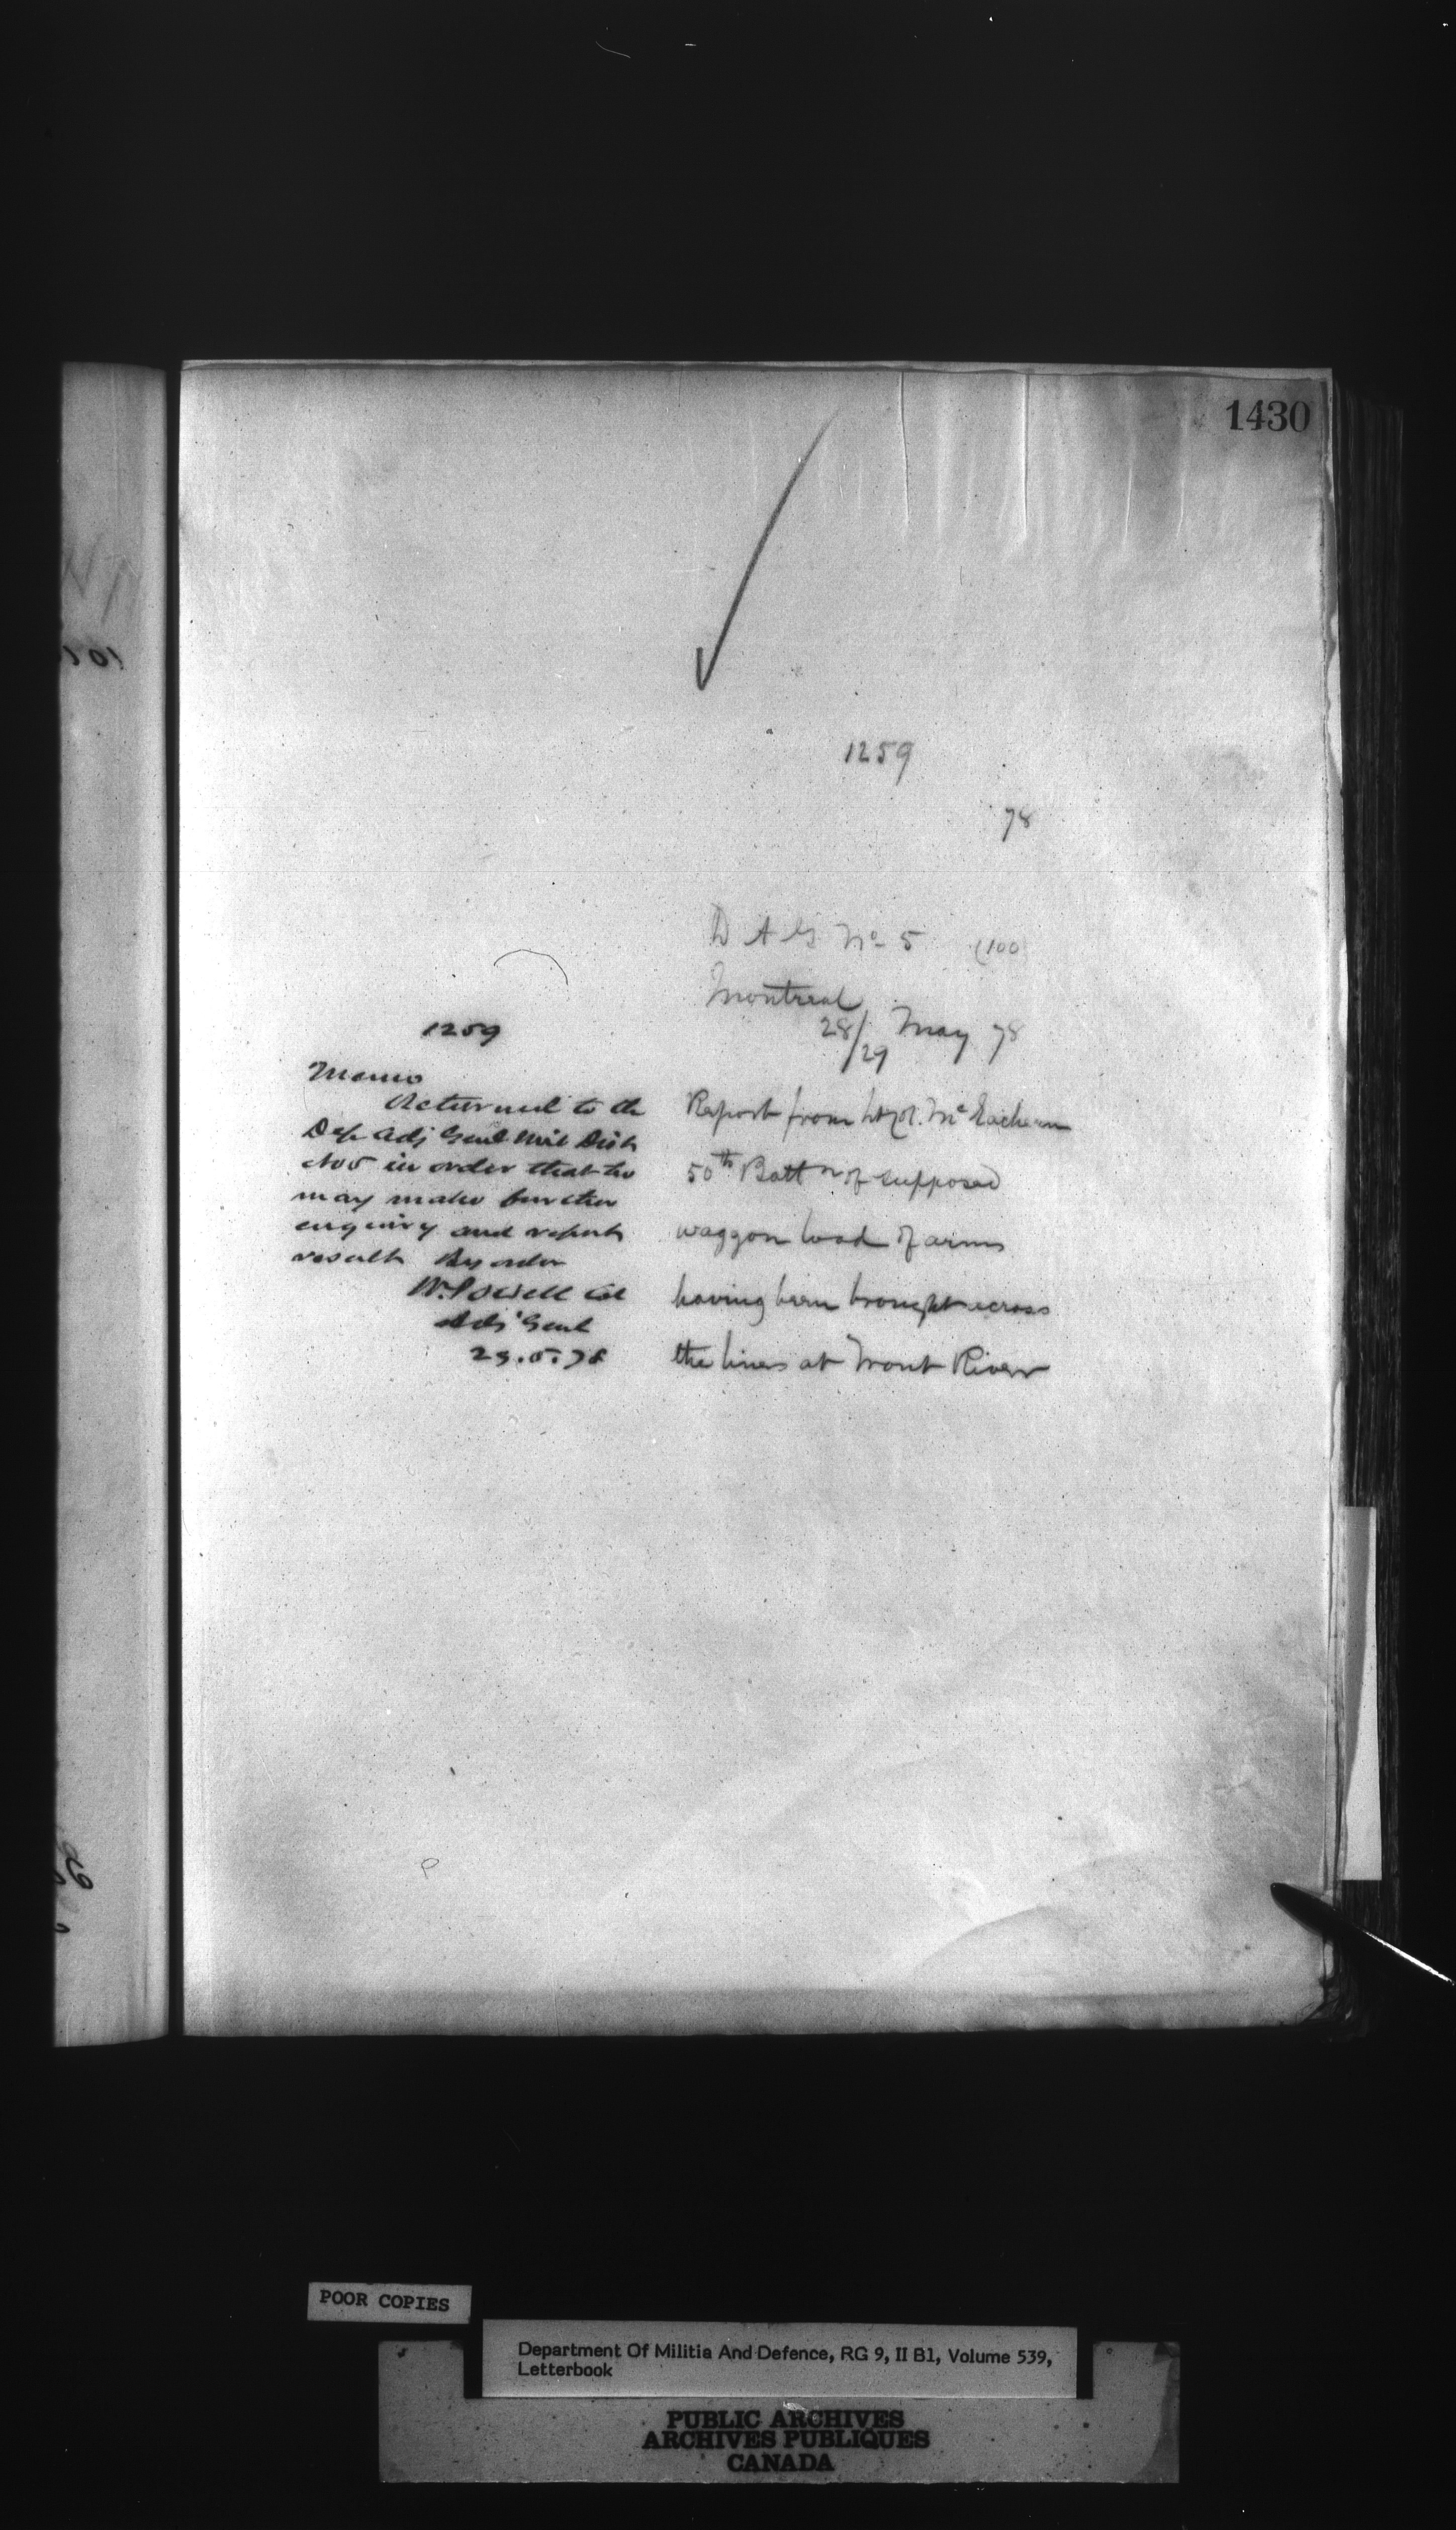 1430
1259
78
D A G No 5 (100)
Montreal
28/29 May 78
Report from Lt Col. McEachern
50th Battn of supposed
waggon load of arms
having been brought across
the lines at Trout River
1259
Memo
Returned to the
Dep Adj Genl Mil Dist
No 5 in order that he
may make further
enquiry and report
result By order
W. Powell Col
Adj Genl
29.5.78
POOR COPIES
Department Of Militia And Defence, RG 9, II B1, Volume 539,
Letterbook
PUBLIC ARCHIVES
ARCHIVES PUBLIQUES
CANADA